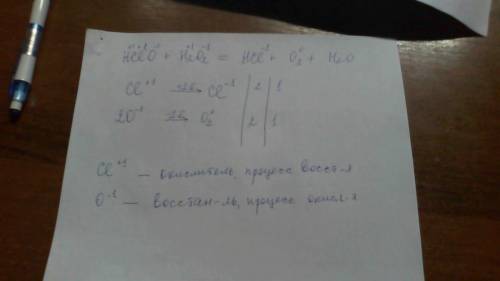 H⁺¹Cl⁺¹O⁻² + H₂⁺¹O₂⁻¹ = HCl⁻¹ + O₂⁰ + H₂O
Cl⁺¹ +2e→ Cl⁻¹ | 2 | 1
2O⁻¹ -2e→ O₂⁰ | 2 | 1
Cl⁺¹ — окислитель, процесс восст-я
O⁻¹ — восстан-ль, процесс окисл-я